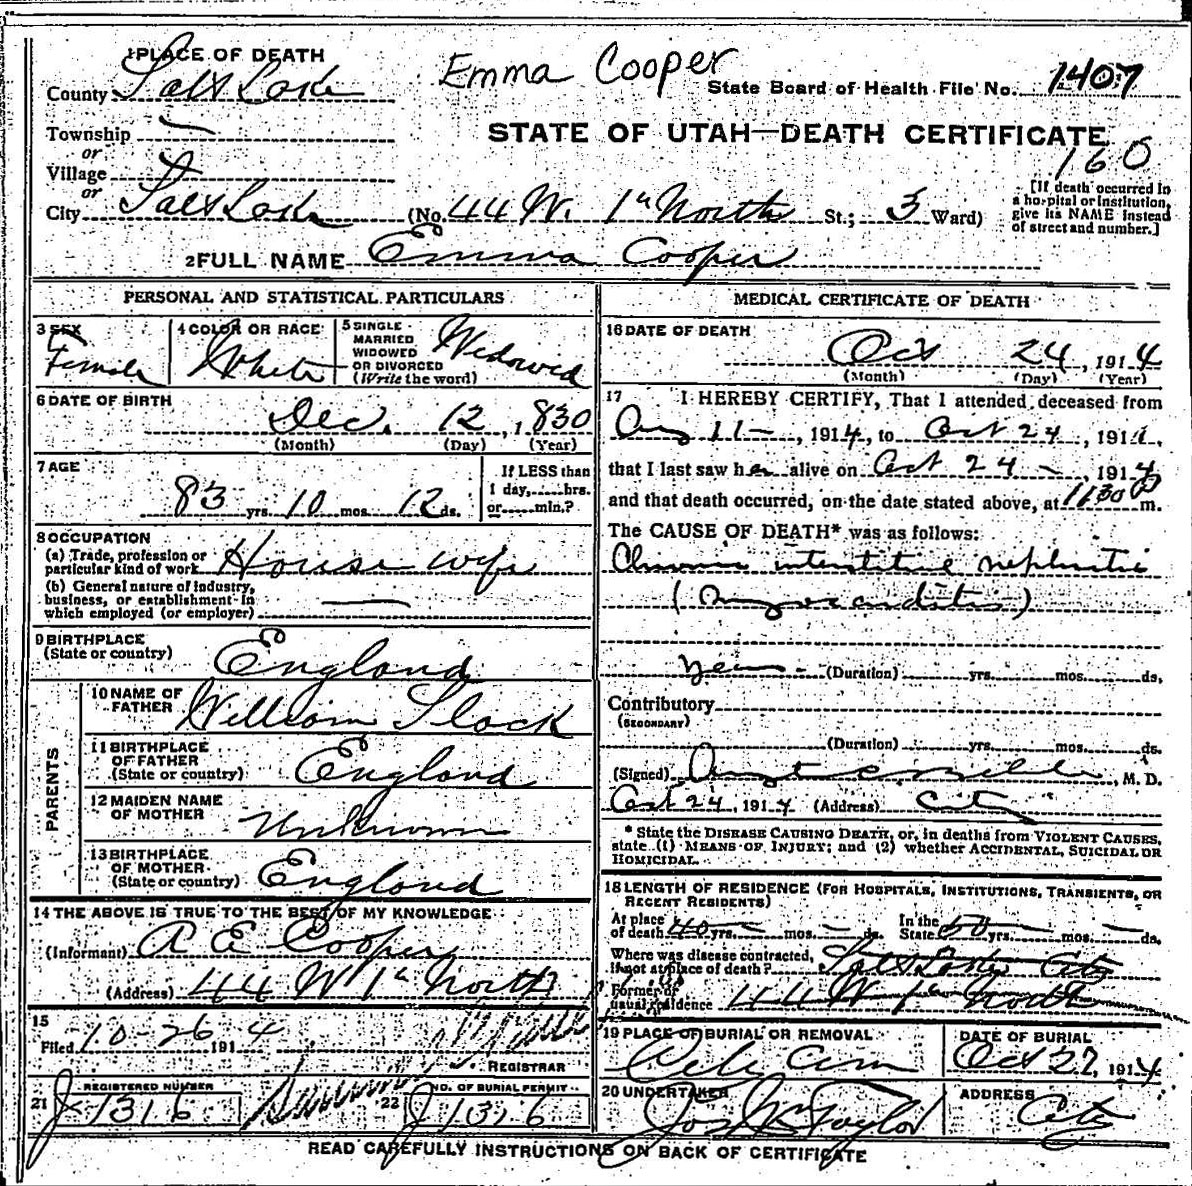 1 PLACE OF DEATH
Emma Cooper
County Salt Lake
State Board of Health File No. 1407
Township
STATE OF UTAH—DEATH CERTIFICATE
or
160
Village
or
City Salt Lake (No. 44 W. 1st North St.; 3 Ward)
[If death occurred in
a hospital or institution,
give its NAME instead
of street and number.]
2 FULL NAME Emma Cooper
PERSONAL AND STATISTICAL PARTICULARS
3 SEX
Female
4 COLOR OR RACE
White
5 SINGLE
MARRIED
WIDOWED
OR DIVORCED
(Write the word)
Widowed
6 DATE OF BIRTH
Dec. 12, 1830
(Month) (Day) (Year)
7 AGE
83 yrs. 10 mos. 12 ds.
If LESS than
1 day, hrs.
or min.?
8 OCCUPATION
(a) Trade, profession or
particular kind of work House wife
(b) General nature of industry,
business, or establishment in
which employed (or employer)
9 BIRTHPLACE
(State or country)
England
PARENTS
10 NAME OF
FATHER
William Slack
11 BIRTHPLACE
OF FATHER
(State or country)
England
12 MAIDEN NAME
OF MOTHER
Unknown
13 BIRTHPLACE
OF MOTHER
(State or country)
England
14 THE ABOVE IS TRUE TO THE BEST OF MY KNOWLEDGE
(Informant) A E Cooper
(Address) 44 W 1st North
15
Filed 10-26 1914
REGISTRAR
21 REGISTERED NUMBER
J 1316
22 NO. OF BURIAL PERMIT
J 1316
MEDICAL CERTIFICATE OF DEATH
16 DATE OF DEATH
Oct 24, 1914
(Month) (Day) (Year)
17 I HEREBY CERTIFY, That I attended deceased from
Aug 11, 1914, to Oct 24, 1914,
that I last saw her alive on Oct 24 1914
and that death occurred, on the date stated above, at 11:30 P m.
The CAUSE OF DEATH* was as follows:
Chronic interstitial nephritis
(Myocarditis)
years (Duration) yrs. mos. ds.
Contributory
(SECONDARY)
(Duration) yrs. mos. ds.
(Signed) , M. D.
Oct 24, 1914 (Address) City
* State the DISEASE CAUSING DEATH, or, in deaths from VIOLENT CAUSES,
state (1) MEANS OF INJURY; and (2) whether ACCIDENTAL, SUICIDAL OR
HOMICIDAL.
18 LENGTH OF RESIDENCE (FOR HOSPITALS, INSTITUTIONS, TRANSIENTS, OR
RECENT RESIDENTS)
At place
of death 40 yrs. mos. ds.
In the
State 50 yrs. mos. ds.
Where was disease contracted,
if not at place of death? Salt Lake City
Former or
usual residence 44 W 1st North
19 PLACE OF BURIAL OR REMOVAL
City Cem
DATE OF BURIAL
Oct 27, 1914
20 UNDERTAKER
Jos Wm Taylor
ADDRESS
City
READ CAREFULLY INSTRUCTIONS ON BACK OF CERTIFICATE